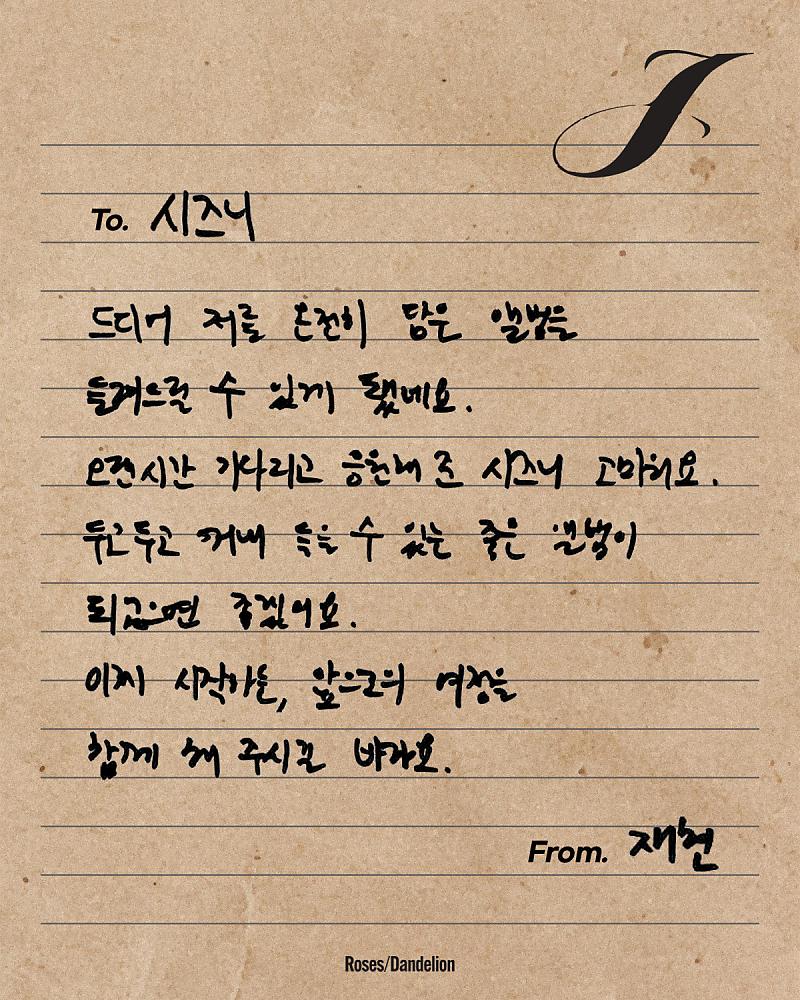 J
To. 시즈니
드디어 저를 온전히 담은 앨범을
들려드릴 수 있게 됐네요.
오랜시간 기다리고 응원해 준 시즈니 고마워요.
두고두고 꺼내 들을 수 있는 좋은 앨범이
되었으면 좋겠어요.
이제 시작하는, 앞으로의 여정을
함께 해 주시길 바라요.
From. 재현
Roses/Dandelion